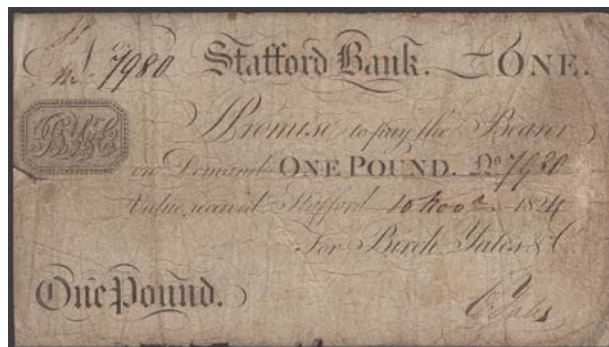 No. 7980 Stafford Bank. ONE.
I Promise to pay the Bearer
on Demand ONE POUND. No 7980
Value received Stafford 10 Nov 1824
For Birch Yates & Co
One Pound.
Yates